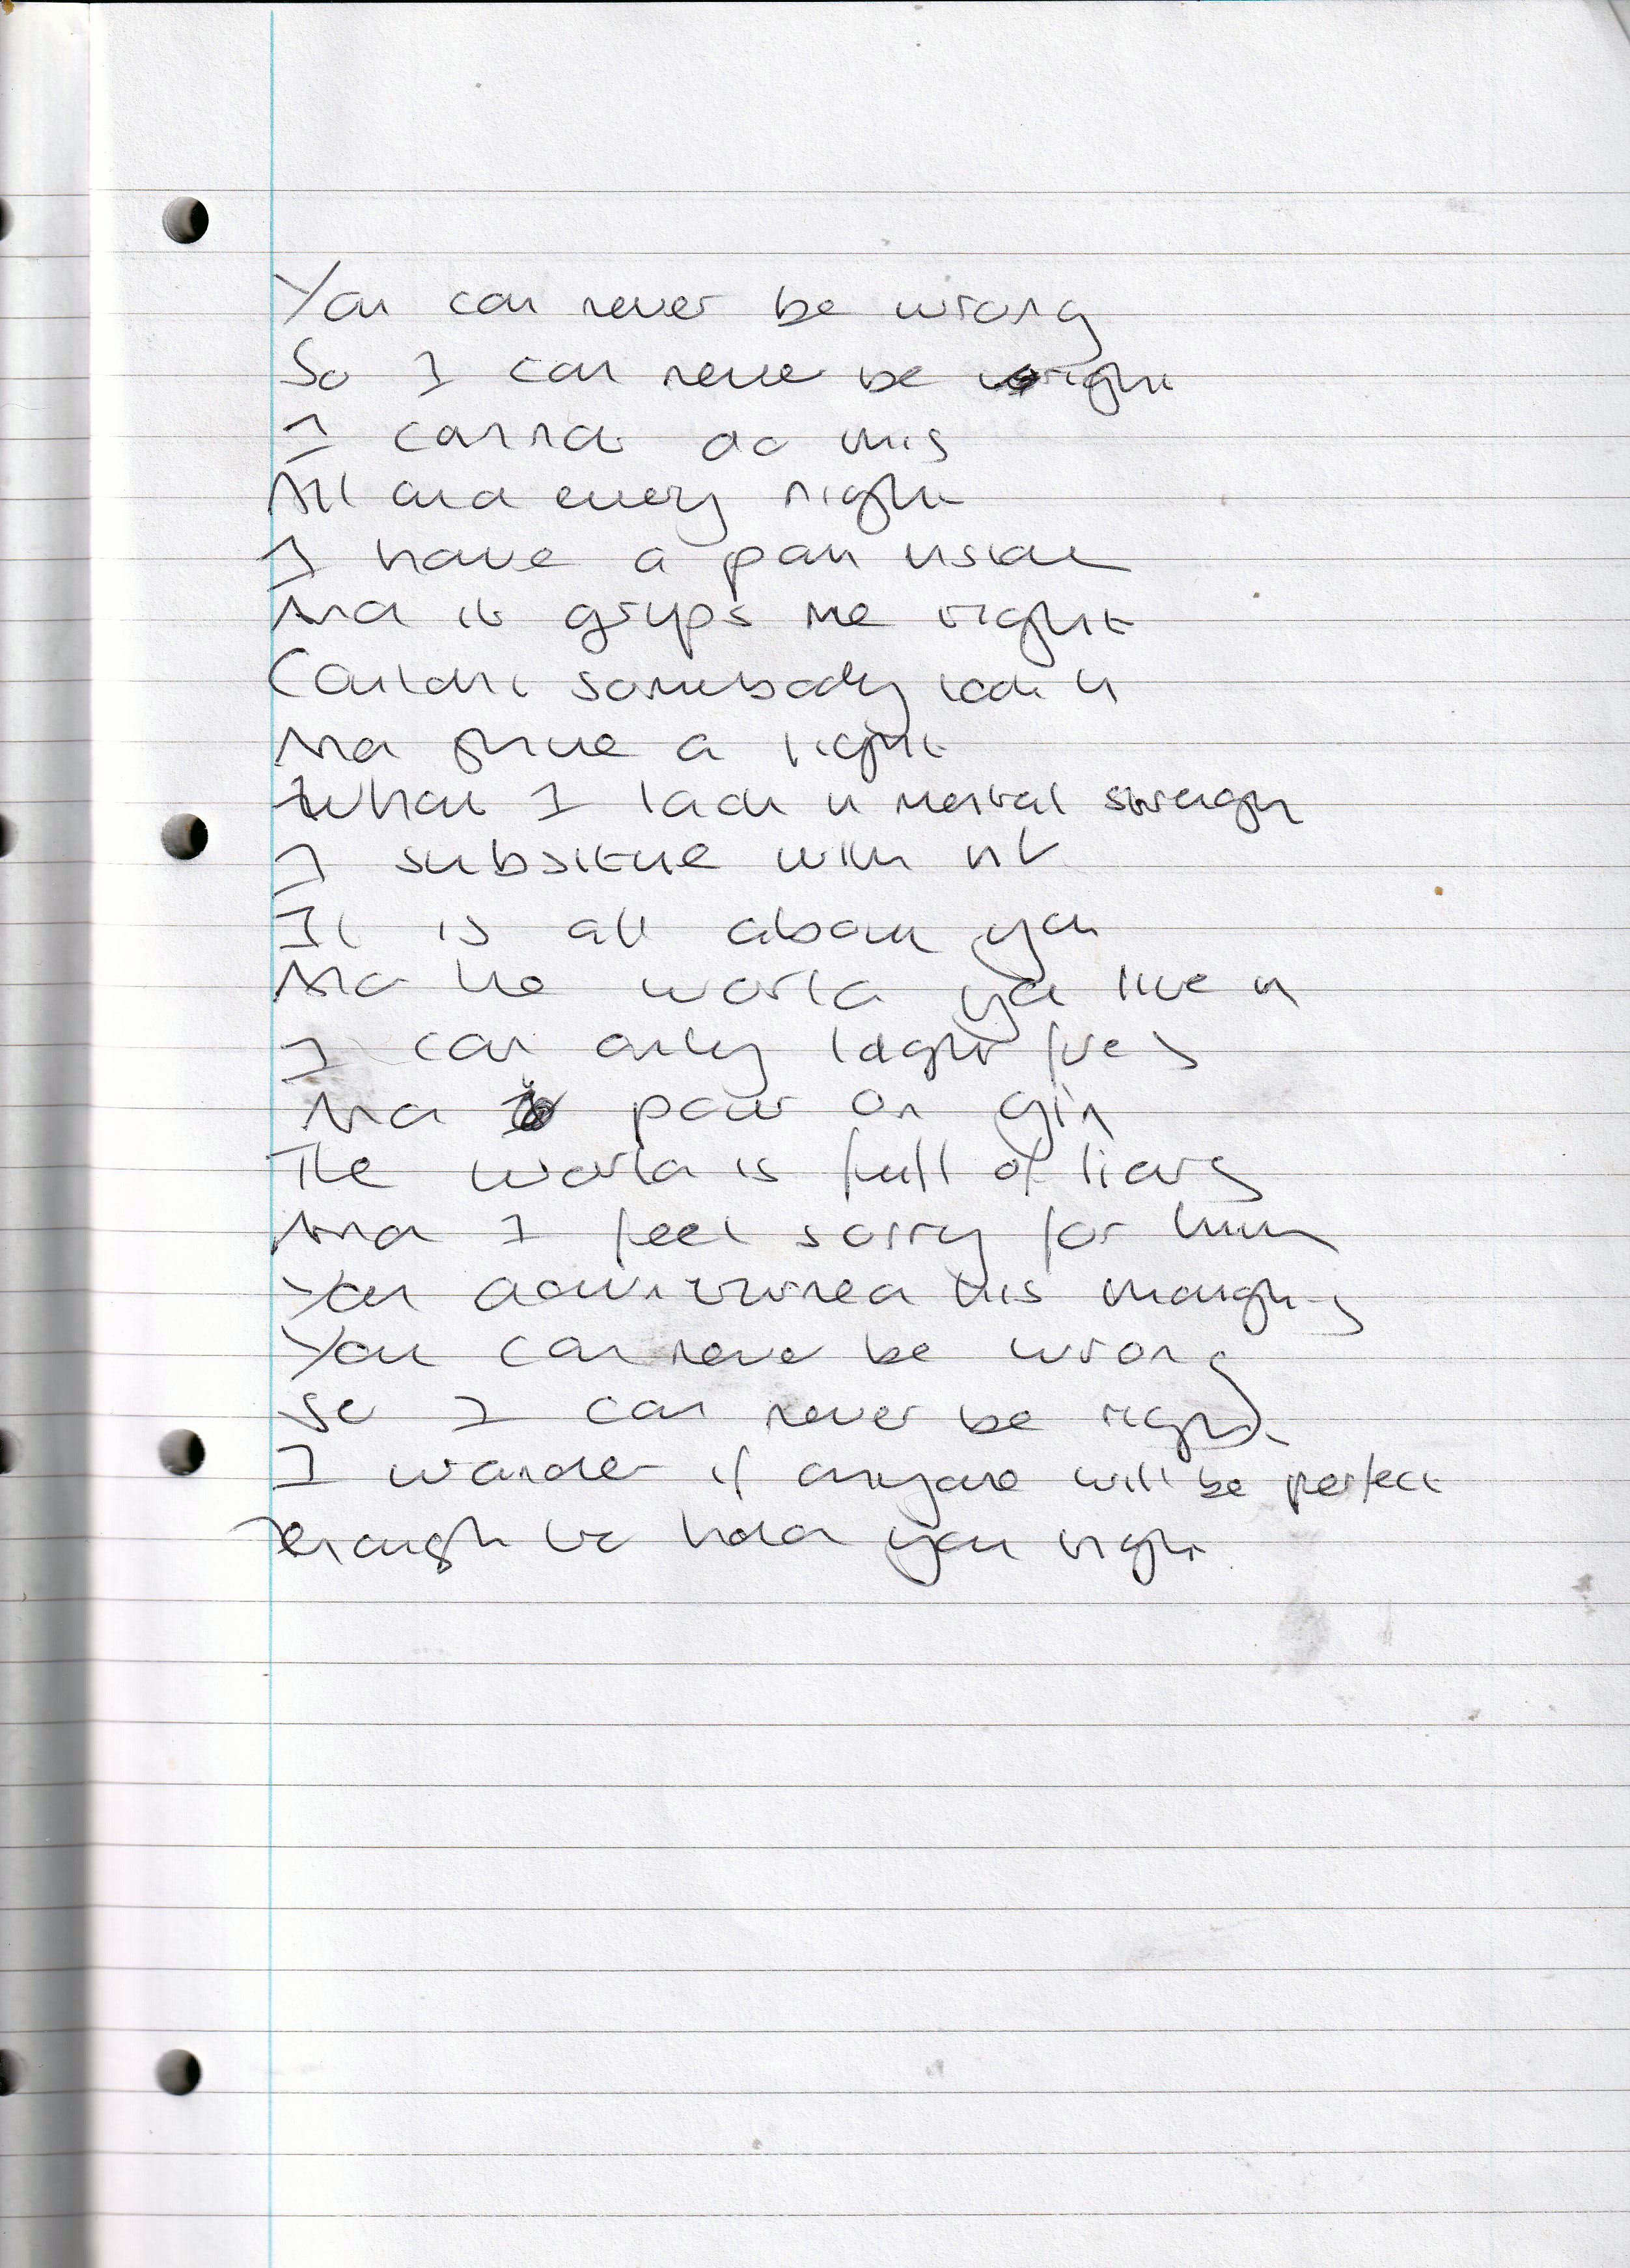 You can never be wrong
So I can never be right
I cannot do this
All and every night
I have a pain inside
And it grips me right
Couldnt somebody look in
And shine a light
What I lack in mental strength
I subsitute with wit
It is all about you
And the world you live in
I can only light fires
And pour on gin
The world is full of liars
And I feel sorry for him
You this
You can never be wrong
So I can never be right
I wonder if anyone will be perfect
enough to hold you tight